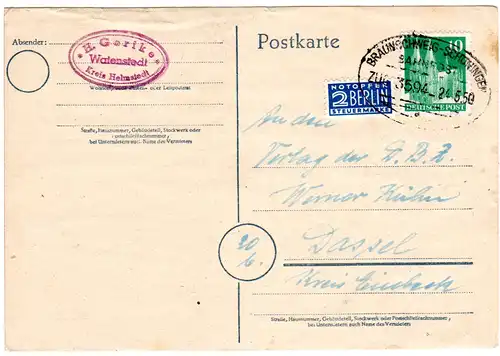 Absender:
* H. Gerike *
Watenstedt
Kreis Helmstedt
Straße, Hausnummer, Gebäudeteil, Stockwerk oder
Postschließfachnummer,
bei Untermietern auch Name des Vermieters
Postkarte
NOTOPFER
2 BERLIN
STEUERMARKE
BRAUNSCHWEIG-SCHÖNINGEN
ZUG 3594 21.5.50
10
DEUTSCHE POST
An den
Verlag der D.B.Z.
Werner Kühn
20
b.
Dassel
Kreis Einbeck
Straße, Hausnummer, Gebäudeteil, Stockwerk oder Postschließfachnummer,
bei Untermietern auch Name des Vermieters